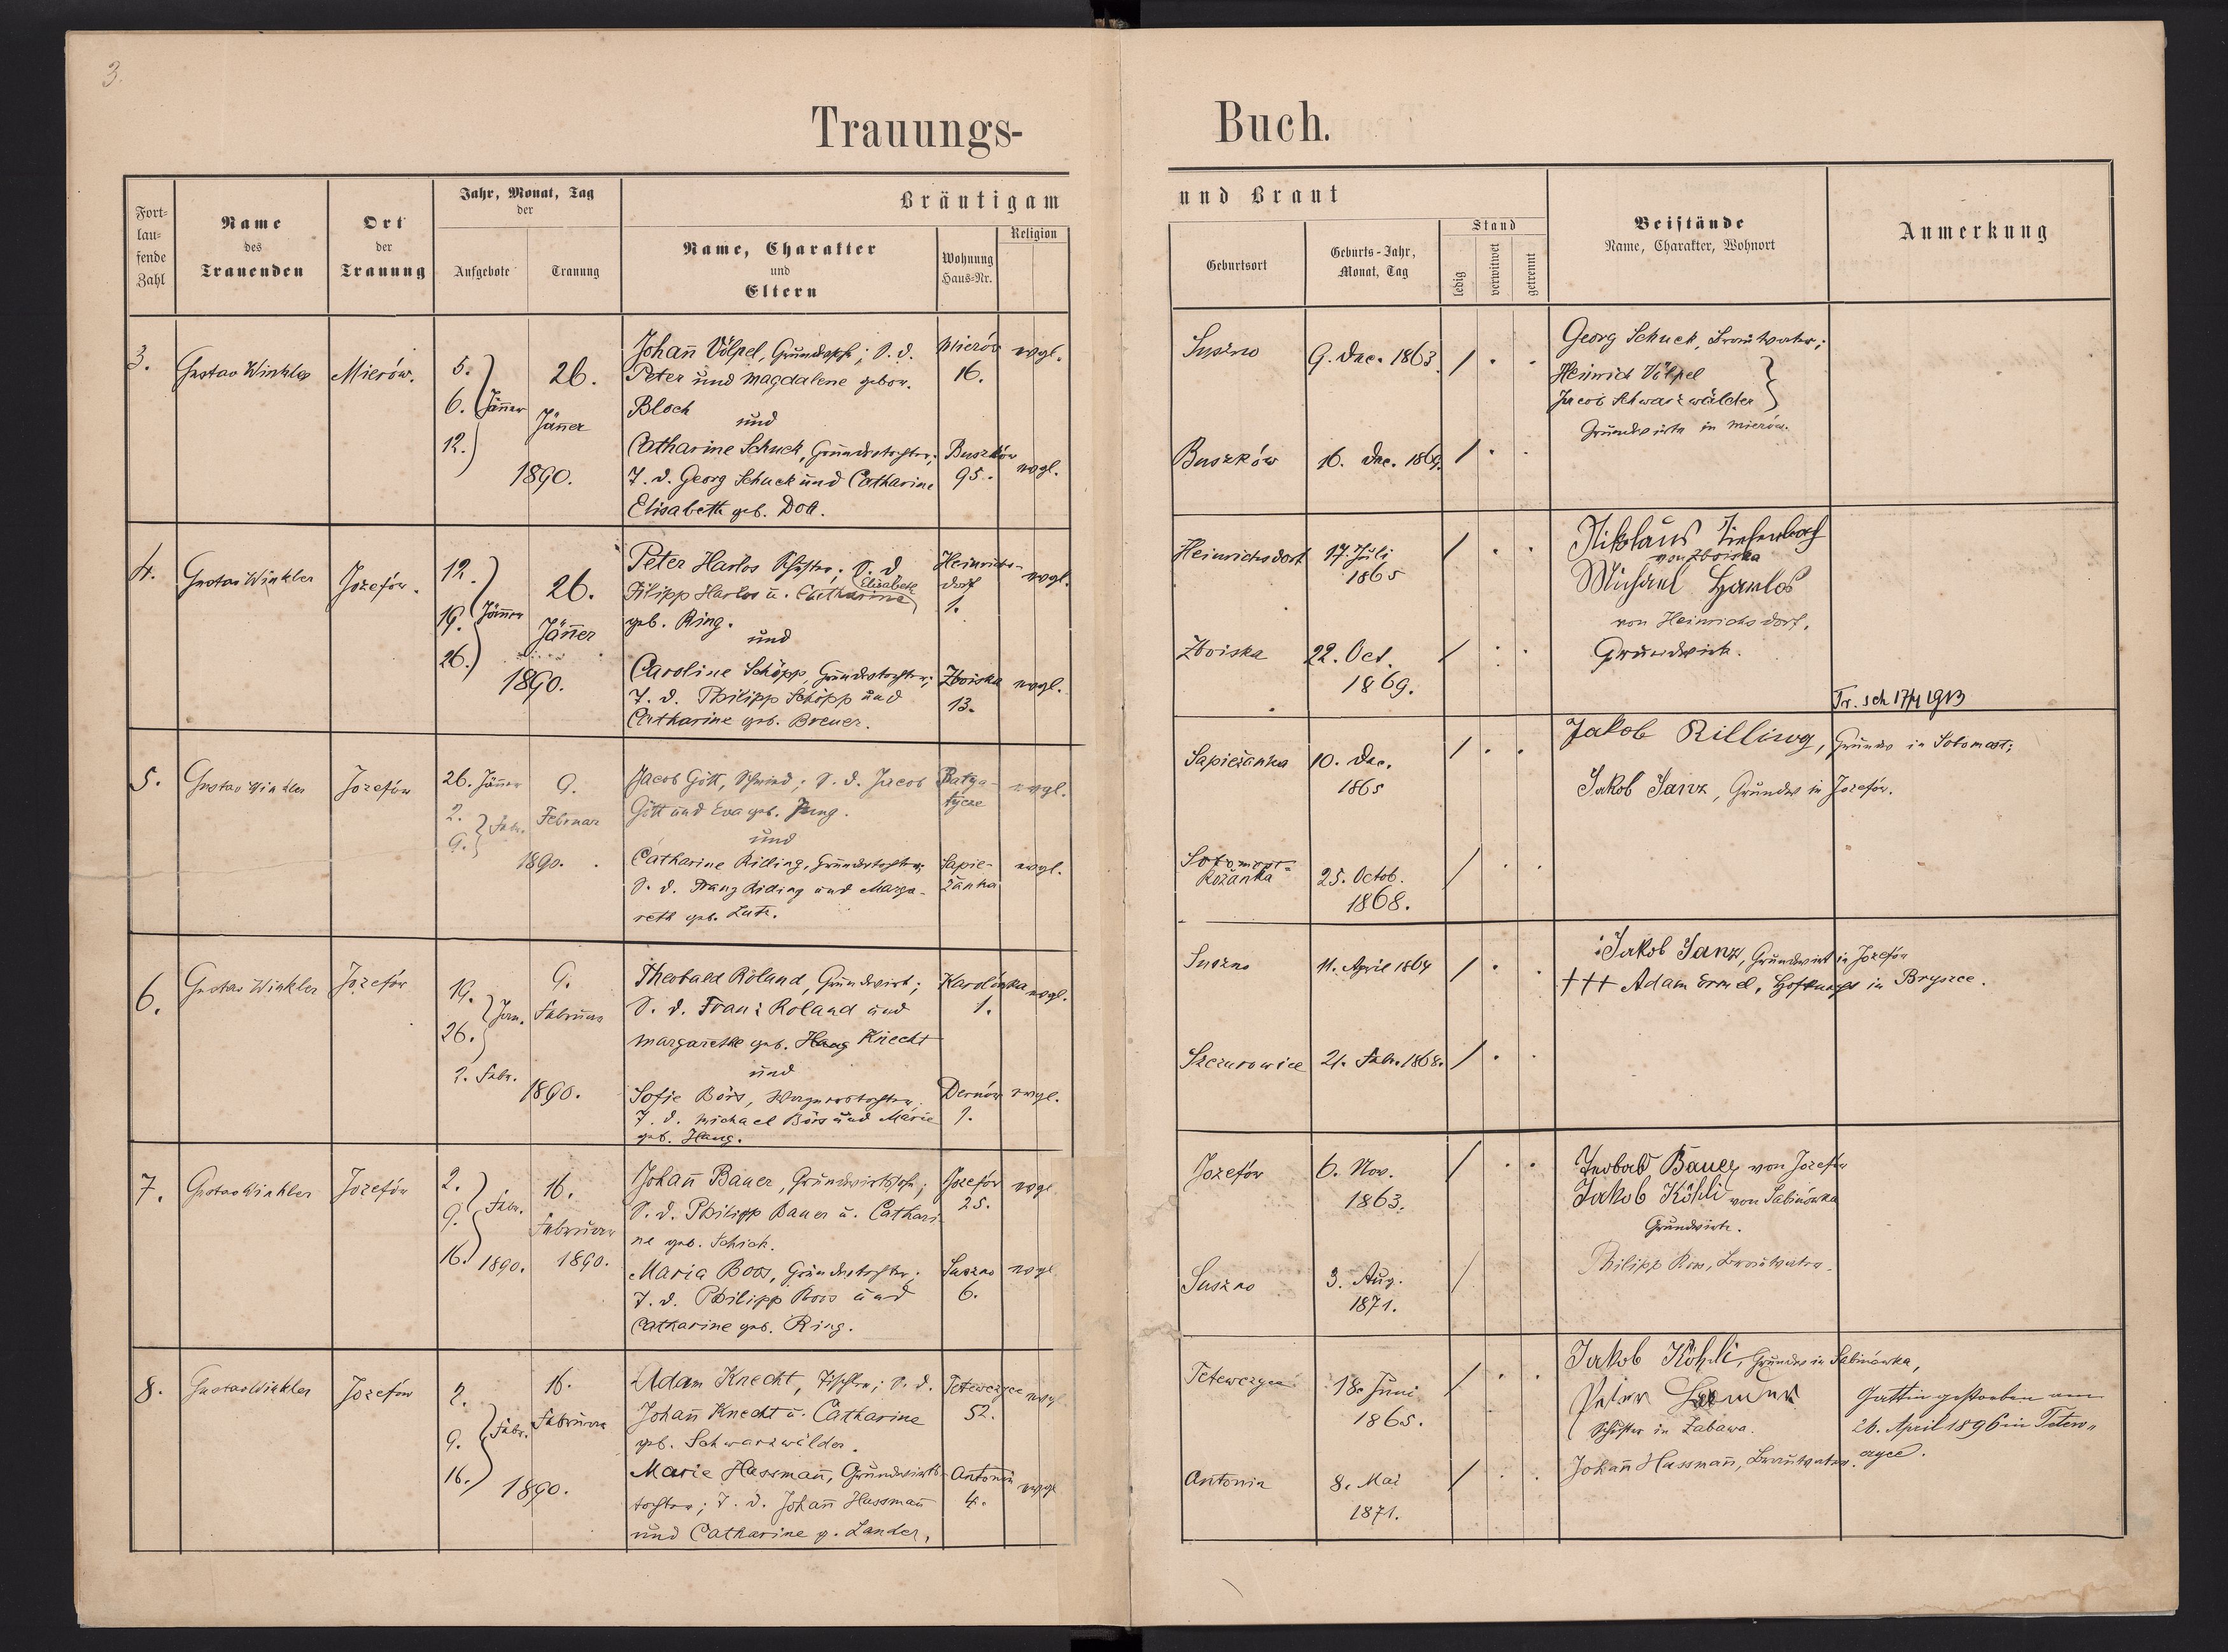 3.
Trauungs- Buch.
Fort-
lau-
fende
Zahl
Name
des
Trauenden
Ort
der
Trauung
Jahr, Monat, Tag
der
Aufgebote
Trauung
Bräutigam
Name, Charakter
und
Eltern
Wohnung
Haus-Nr.
Religion
und Braut
Geburtsort
Geburts-Jahr,
Monat, Tag
Stand
ledig
verwitwet
getrennt
Beistände
Name, Charakter, Wohnort
Anmerkung
3.
Gustav Winkler
Mierów.
5.
6. Jänner
12.
26.
Jänner
1890.
Johann Völpel, S. d.
Peter und Magdalene gebor.
Bloch
und
Catharine Schuck, Grundwtochter;
T. d. Georg Schuck und Catharine
Elisabeth geb. Doll.
Mierów
16.
Buszków
95.
evgl.
evgl.
Suszno
9. Dec. 1863.
Buszków
16. Dec. 1869.
Georg Schuck, Brautvater;
Heinrich Völpel
Jacob Schwarzwälder
Grundwirte in Mierów.
4.
Gustav Winkler
Jozefów.
12.
19. Jänner
26.
26.
Jänner
1890.
Peter Harlos Schuster; S. d.
Filipp Harlos u. Catharina Elisabeth
geb. Ring.
und
Caroline Schöpp, Grundwtochter;
T. d. Philipp Schöpp und
Catharine geb. Breuer.
Heinrichs-
dorf
1.
Zboiska
13.
evgl.
evgl.
Heinrichsdorf
17. Juli
1865
Zboiska
22. Oct.
1869.
Nikolaus Tiefenbach
von Zboiska
Michael Harlos
von Heinrichsdorf,
Grundwirte.
Tr. sch 17/4 1913
5.
Gustav Winkler
Jozefów
26. Jänner
2.
9. Febr.
9.
Februar
1890.
Jacob Gött, Schmied; S. d. Jacob
Gött und Eva geb. Jung.
und
Catharine Rilling, Grundwtochter;
T. d. Franz Rilling und Marga-
reth geb. Lutz.
Batya-
tycze
Sapie-
żanka
evgl.
evgl.
Sapieżanka
10. Dec.
1865
Sotomost-
Rożanka
25. Octob.
1868.
Jakob Rilling, Grundw in Sotomost;
Jakob Janz, Grundw in Jozefów.
6.
Gustav Winkler
Jozefów
19.
26. Jan.
2. Febr.
9.
Februar
1890.
Theobald Roland, Grundwirt;
S. d. Franz Roland und
Margarethe geb. Haag Knecht
und
Sofie Börs, Wagnerstochter.
T. d. Michael Börs und Marie
geb. Haag.
Karolinka
1.
Dernów
1.
evgl.
evgl.
Suszno
11. April 1864
Szczurowice
21. Febr. 1868.
Jakob Janz, Grundwirt in Jozefów
+++ Adam in Bryszce.
7.
Gustav Winkler
Jozefów
2.
9. Febr.
16. 1890.
16.
Februar
1890.
Johann Bauer, Grundwirtssohn;
S. d. Philipp Bauer u. Cathari-
ne geb. Schick.
Maria Boos, Grundwtochter;
T. d. Philipp Boos und
Catharine geb. Ring.
Jozefów
25.
Suszno
6.
evgl
evgl
Jozefów
6. Nov.
1863.
Suszno
3. Aug.
1871.
Teobald Bauer von Jozefów
Jakob Köhli von Sabinówka
Grundwirte.
Philipp Boos, Brautvater.
8.
Gustav Winkler
Jozefów
2.
9. Febr.
16.
16.
Februar
1890.
Adam Knecht, Tischler; S. d.
Johann Knecht u. Catharine
geb. Schwarzwälder.
Marie Hassmann, Grundwirts-
tochter; T. d. Johann Hassmann
und Catharine g. Lander,
Tetewczyce
52.
Antonin
4.
evgl
evgl
Tetewczyce
18. Juni
1865.
Antonin
8. Mai
1871.
Jakob Köhli, Grundw in Sabinówka,
Peter
Schuster in Zabawa.
Johann Hassmann, Brautvater.
Gattin gestorben am
26. April 1896 in Tetew-
czyce.